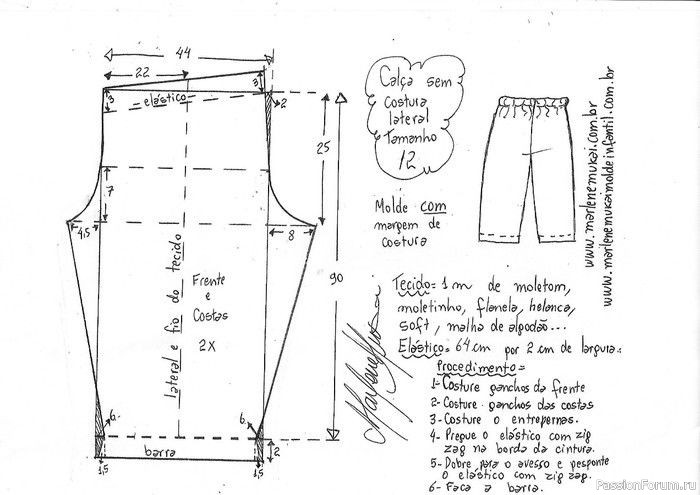 44
22
3
3
elástico
2
25
7
4,5
8
90
lateral e fio do tecido
Frente
e
Costas
2X
6
6
barra
2
1,5
1,5
Calça sem
costura
lateral
Tamanho
12
Molde com
margem de
costura
www.marlenemukai.com.br
www.marlenemukaimoldeinfantil.com.br
Tecido= 1m de moletom,
moletinho, flanela, helanca,
soft, malha de algodão...
Elástico= 64cm por 2 cm de largura.
Procedimento=
1- Costure ganchos da frente
2- Costure ganchos das costas
3- Costure o entrepernas.
4- Pregue o elástico com zig
zag na borda da cintura.
5- Dobre para o avesso e pesponte
o elástico com zig zag.
6- Faça a barra.
PassionForum.ru